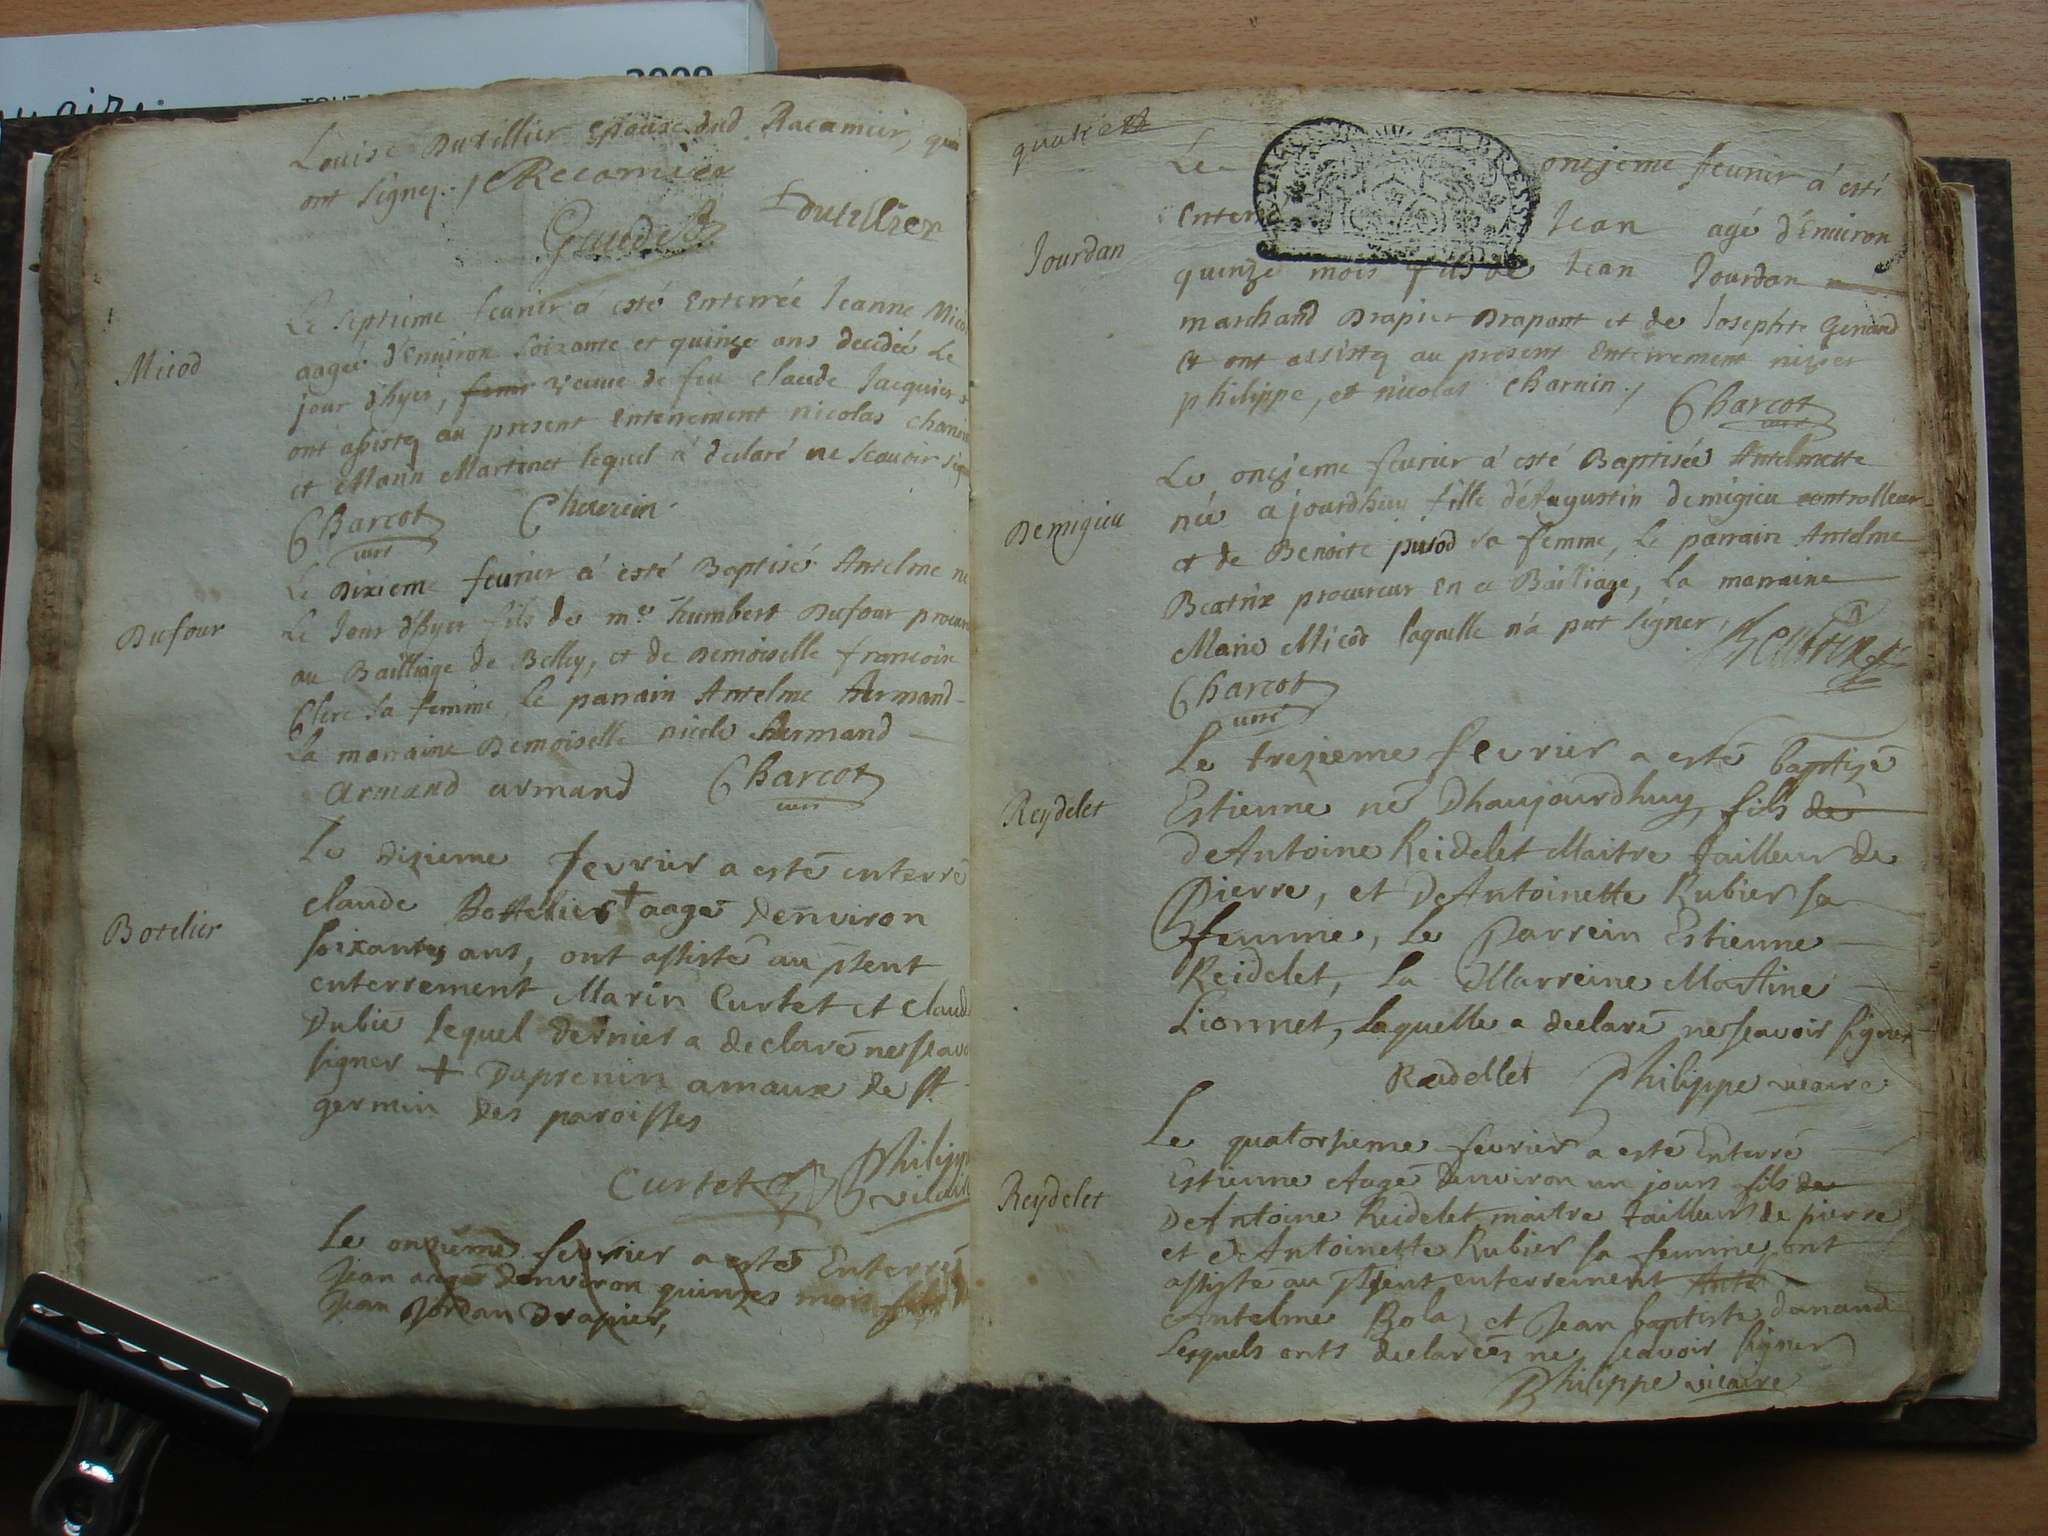 2009
Louise Dutillier epouse dud Racamier, qui
ont signez. / Recamier
Gaudet Ldutillier
Micod
Le septieme feurier a esté Enterrée Jeanne Micod
aagée d'Enuiron soixante et quinze ans decedée Le
jour d'hyer, femme veuue de feu Claude Jacquier
ont assistez au present Enterrement nicolas
et Marin Martinet lequel a declaré ne scauoir signer
Charcot curé
Dufour
Le Dixieme feurier a esté Baptisé Antelme né
Le Jour d'hyer fils de mre humbert Dufour procureur
au Bailliage de Belley, et de Demoiselle francoise
Clerc sa femme, Le parrain Antelme hermand
La marraine Demoiselle nicole hermand
armand armand Charcot
curé
Botelier
Le dixieme fevrier a esté enterré
claude Bottelier + aagé denviron
soixantes ans, ont assisté au pnt
enterrement Marin Curtet et claude
Dubie lequel dernier a declaré ne scavoir
signer + Duprenin amaux de st
germin des paroisses
Curtet Philippe
vicaire
Le onzieme fevrier a esté Enterré
Jean aagé denviron quinzes mois fils de
Jean Jordan Drapier,
quatre
Le onzieme feurier a esté
Enterré Jean agé d'Enuiron
Jourdan
quinze mois fils de Jean Jourdan
marchand Drapier Drapant et de Josephte Genand
et ont assistez au present Enterrement nizier
philippe, et nicolas Charnin. /
Charcot
curé
Le onzieme feurier a esté Baptisée Antelmette
Demigieu
née ajourdhuy fille d'Augustin demigieu controlleur
et de Benoite pusod sa femme, Le parrain Antelme
Beatrix procureur En ce Bailiage, La marraine
Marie Micod laquelle n'a put signer,
Beatrix
Charcot
curé
Le trezieme fevrier a esté baptizé
Reydelet
Estienne né Dhaujourdhuy, fils de
deAntoine Reidelet Maitre tailleur de
Pierre, et deAntoinette Rubier sa
femme, Le Parrein Estienne
Reidelet, La Marreine Martine
Lionnet, laquelle a declaré ne scavoir signer
Reidellet Philippe vicaire
Le quatorsieme fevrier a esté Enterré
Reydelet
Estienne Aagé denviron un jours fils de
DeAntoine Reidelet maitre tailleur de pierre
et deAntoinette Rubier sa femme, ont
assisté au psent enterrement Ante
Antelme Bola, et Jean baptiste
lesquels onts declarées ne scavoir signer
Philippe vicaire